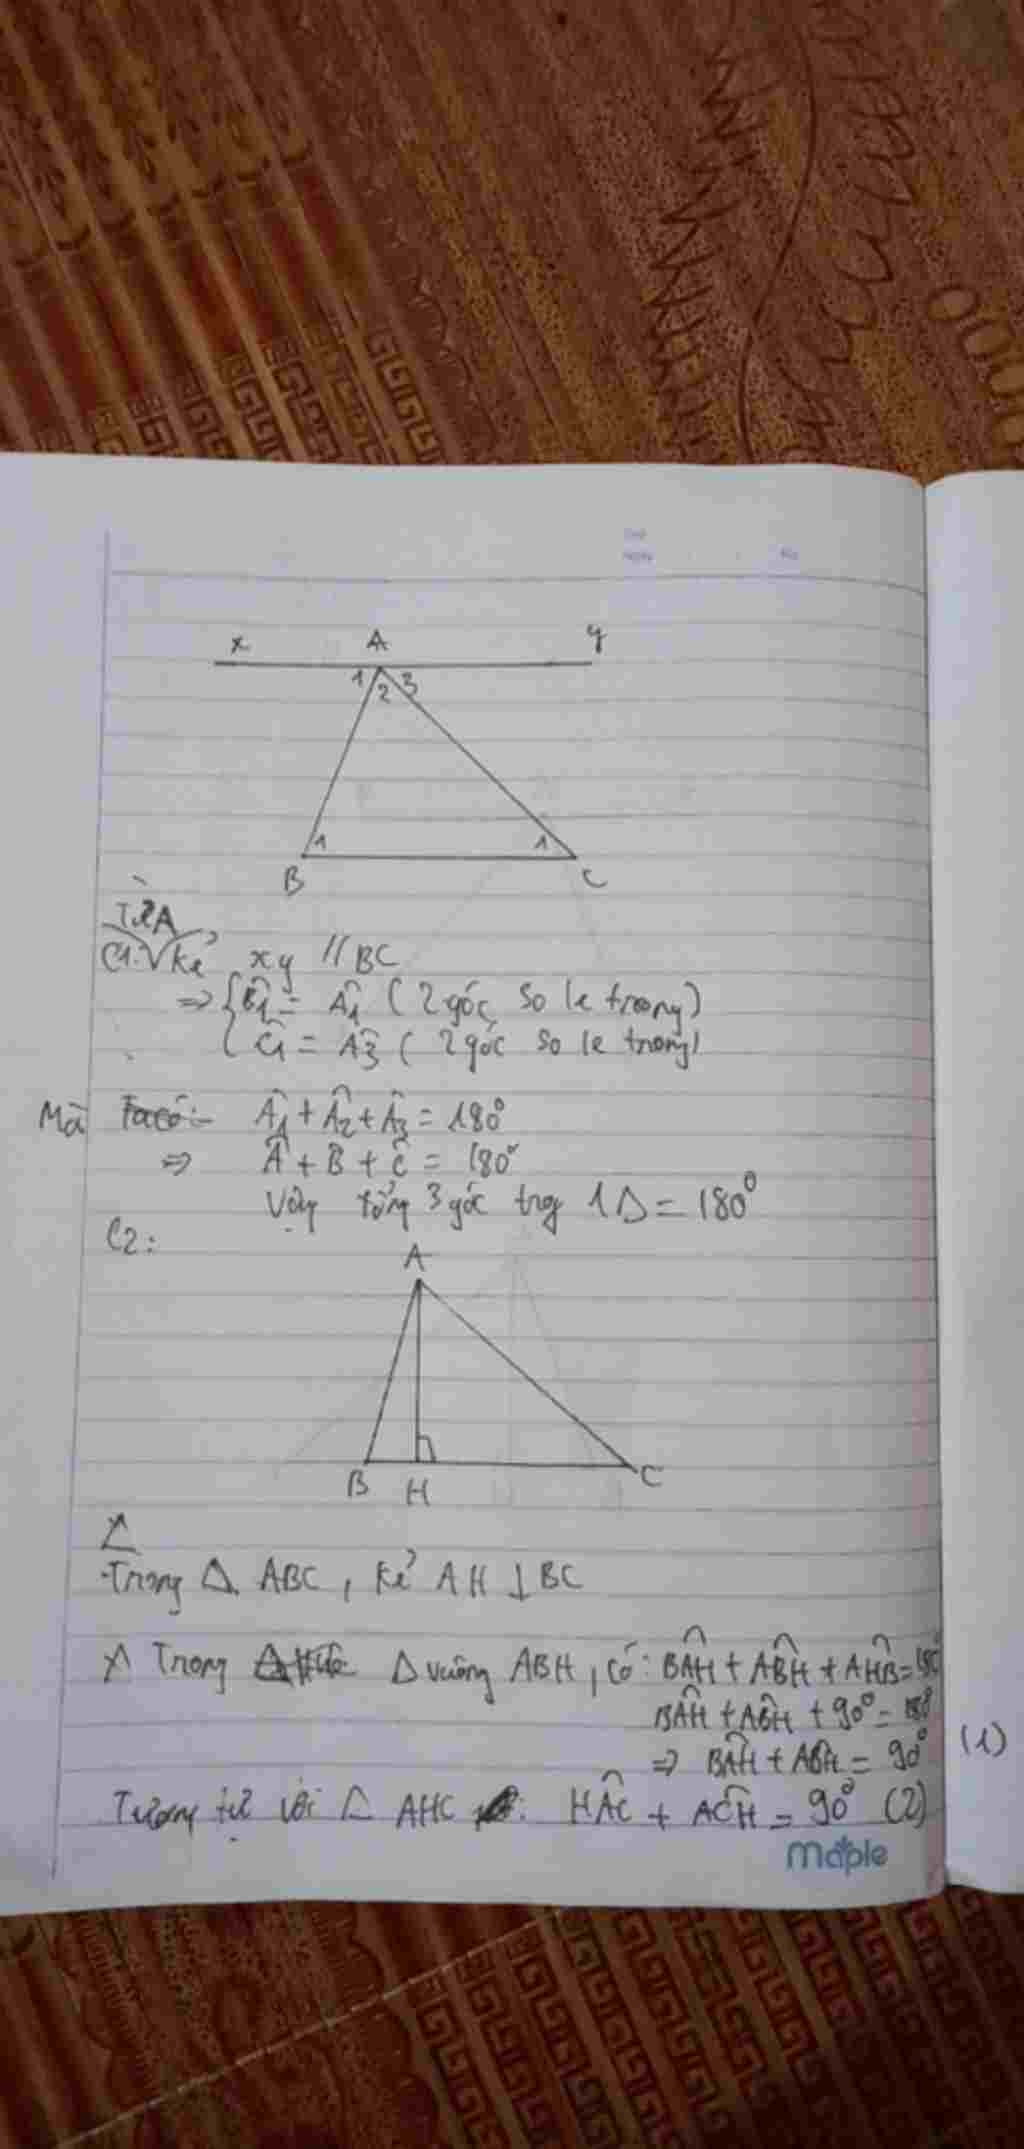 x A y
1 2 3
1 1
B C
Từ A
C1: √ Kẻ xy // BC
⇒ { B̂1 = Â1 (2 góc so le trong)
Ĉ1 = Â3 (2 góc so le trong)
Mà Ta có: Â1 + Â2 + Â3 = 180°
⇒ Â + B̂ + Ĉ = 180°
Vậy tổng 3 góc trog 1 Δ = 180°
C2:
A
B H C
Trong Δ ABC, kẻ AH ⊥ BC
Trong Δ vuông ABH, có: BÂH + AB̂H + AĤB = 180°
BÂH + AB̂H + 90° = 180°
⇒ BÂH + AB̂H = 90° (1)
Tương tự với Δ AHC: HÂC + AĈH = 90° (2)
maple